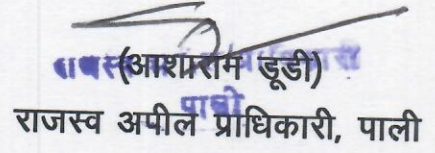 (आशाराम डूडी)
राजस्व अपील प्राधिकारी, पाली